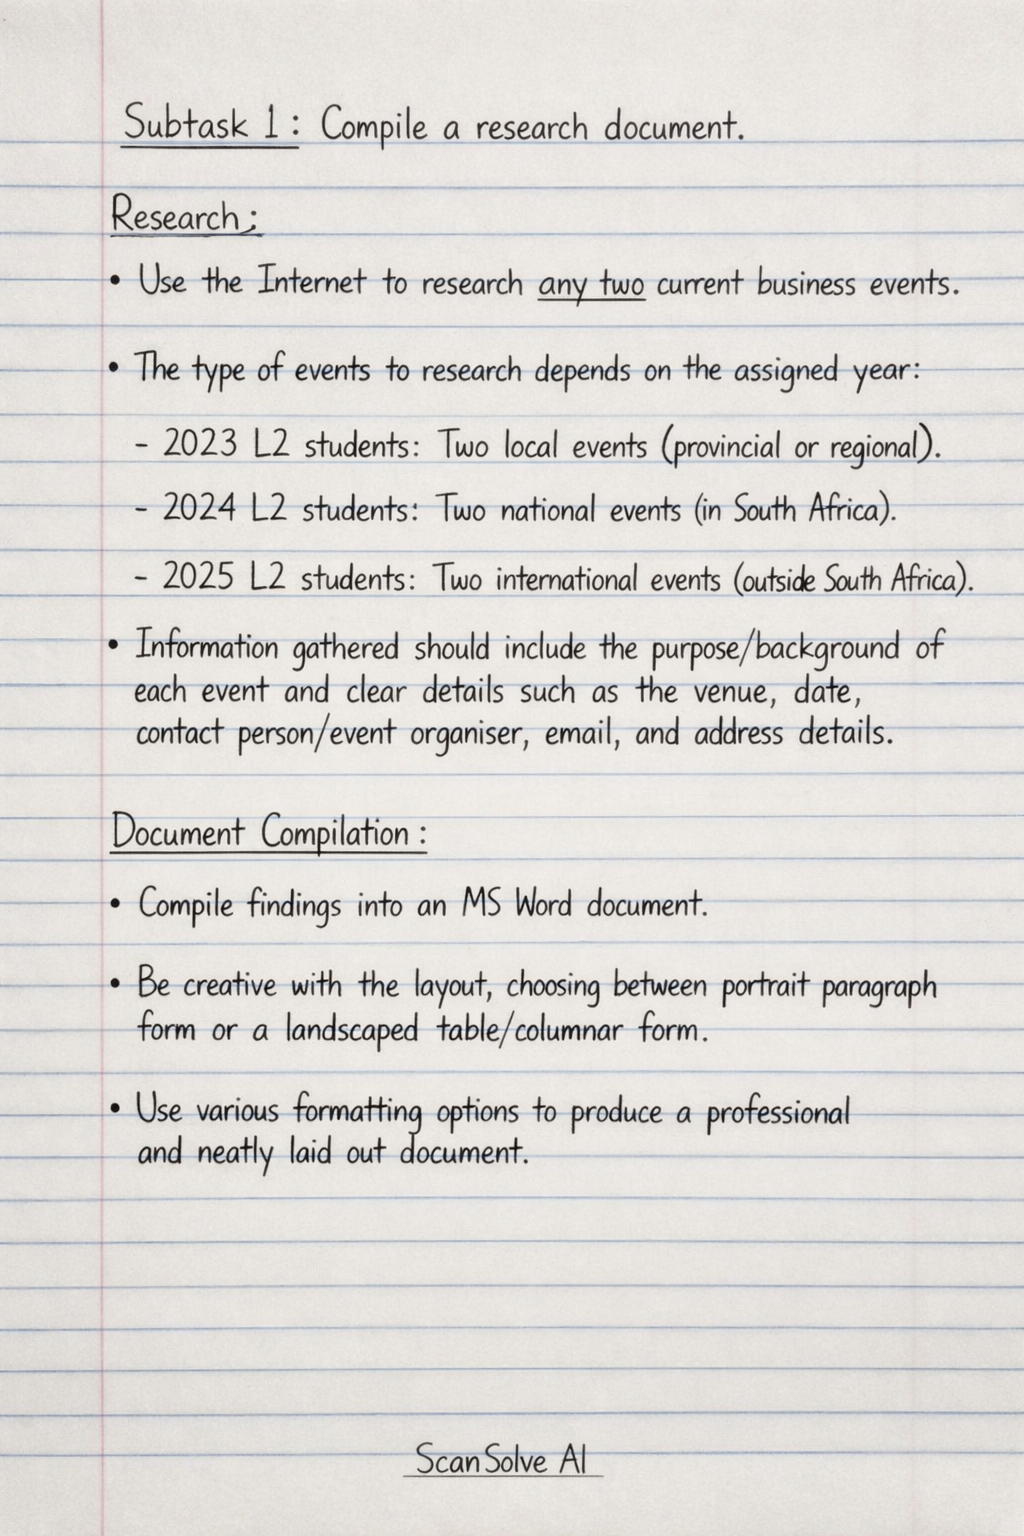 Subtask 1: Compile a research document.
Research:
• Use the Internet to research any two current business events.
• The type of events to research depends on the assigned year:
- 2023 L2 students: Two local events (provincial or regional).
- 2024 L2 students: Two national events (in South Africa).
- 2025 L2 students: Two international events (outside South Africa).
• Information gathered should include the purpose/background of
each event and clear details such as the venue, date,
contact person/event organiser, email, and address details.
Document Compilation:
• Compile findings into an MS Word document.
• Be creative with the layout, choosing between portrait paragraph
form or a landscaped table/columnar form.
• Use various formatting options to produce a professional
and neatly laid out document.
ScanSolve AI